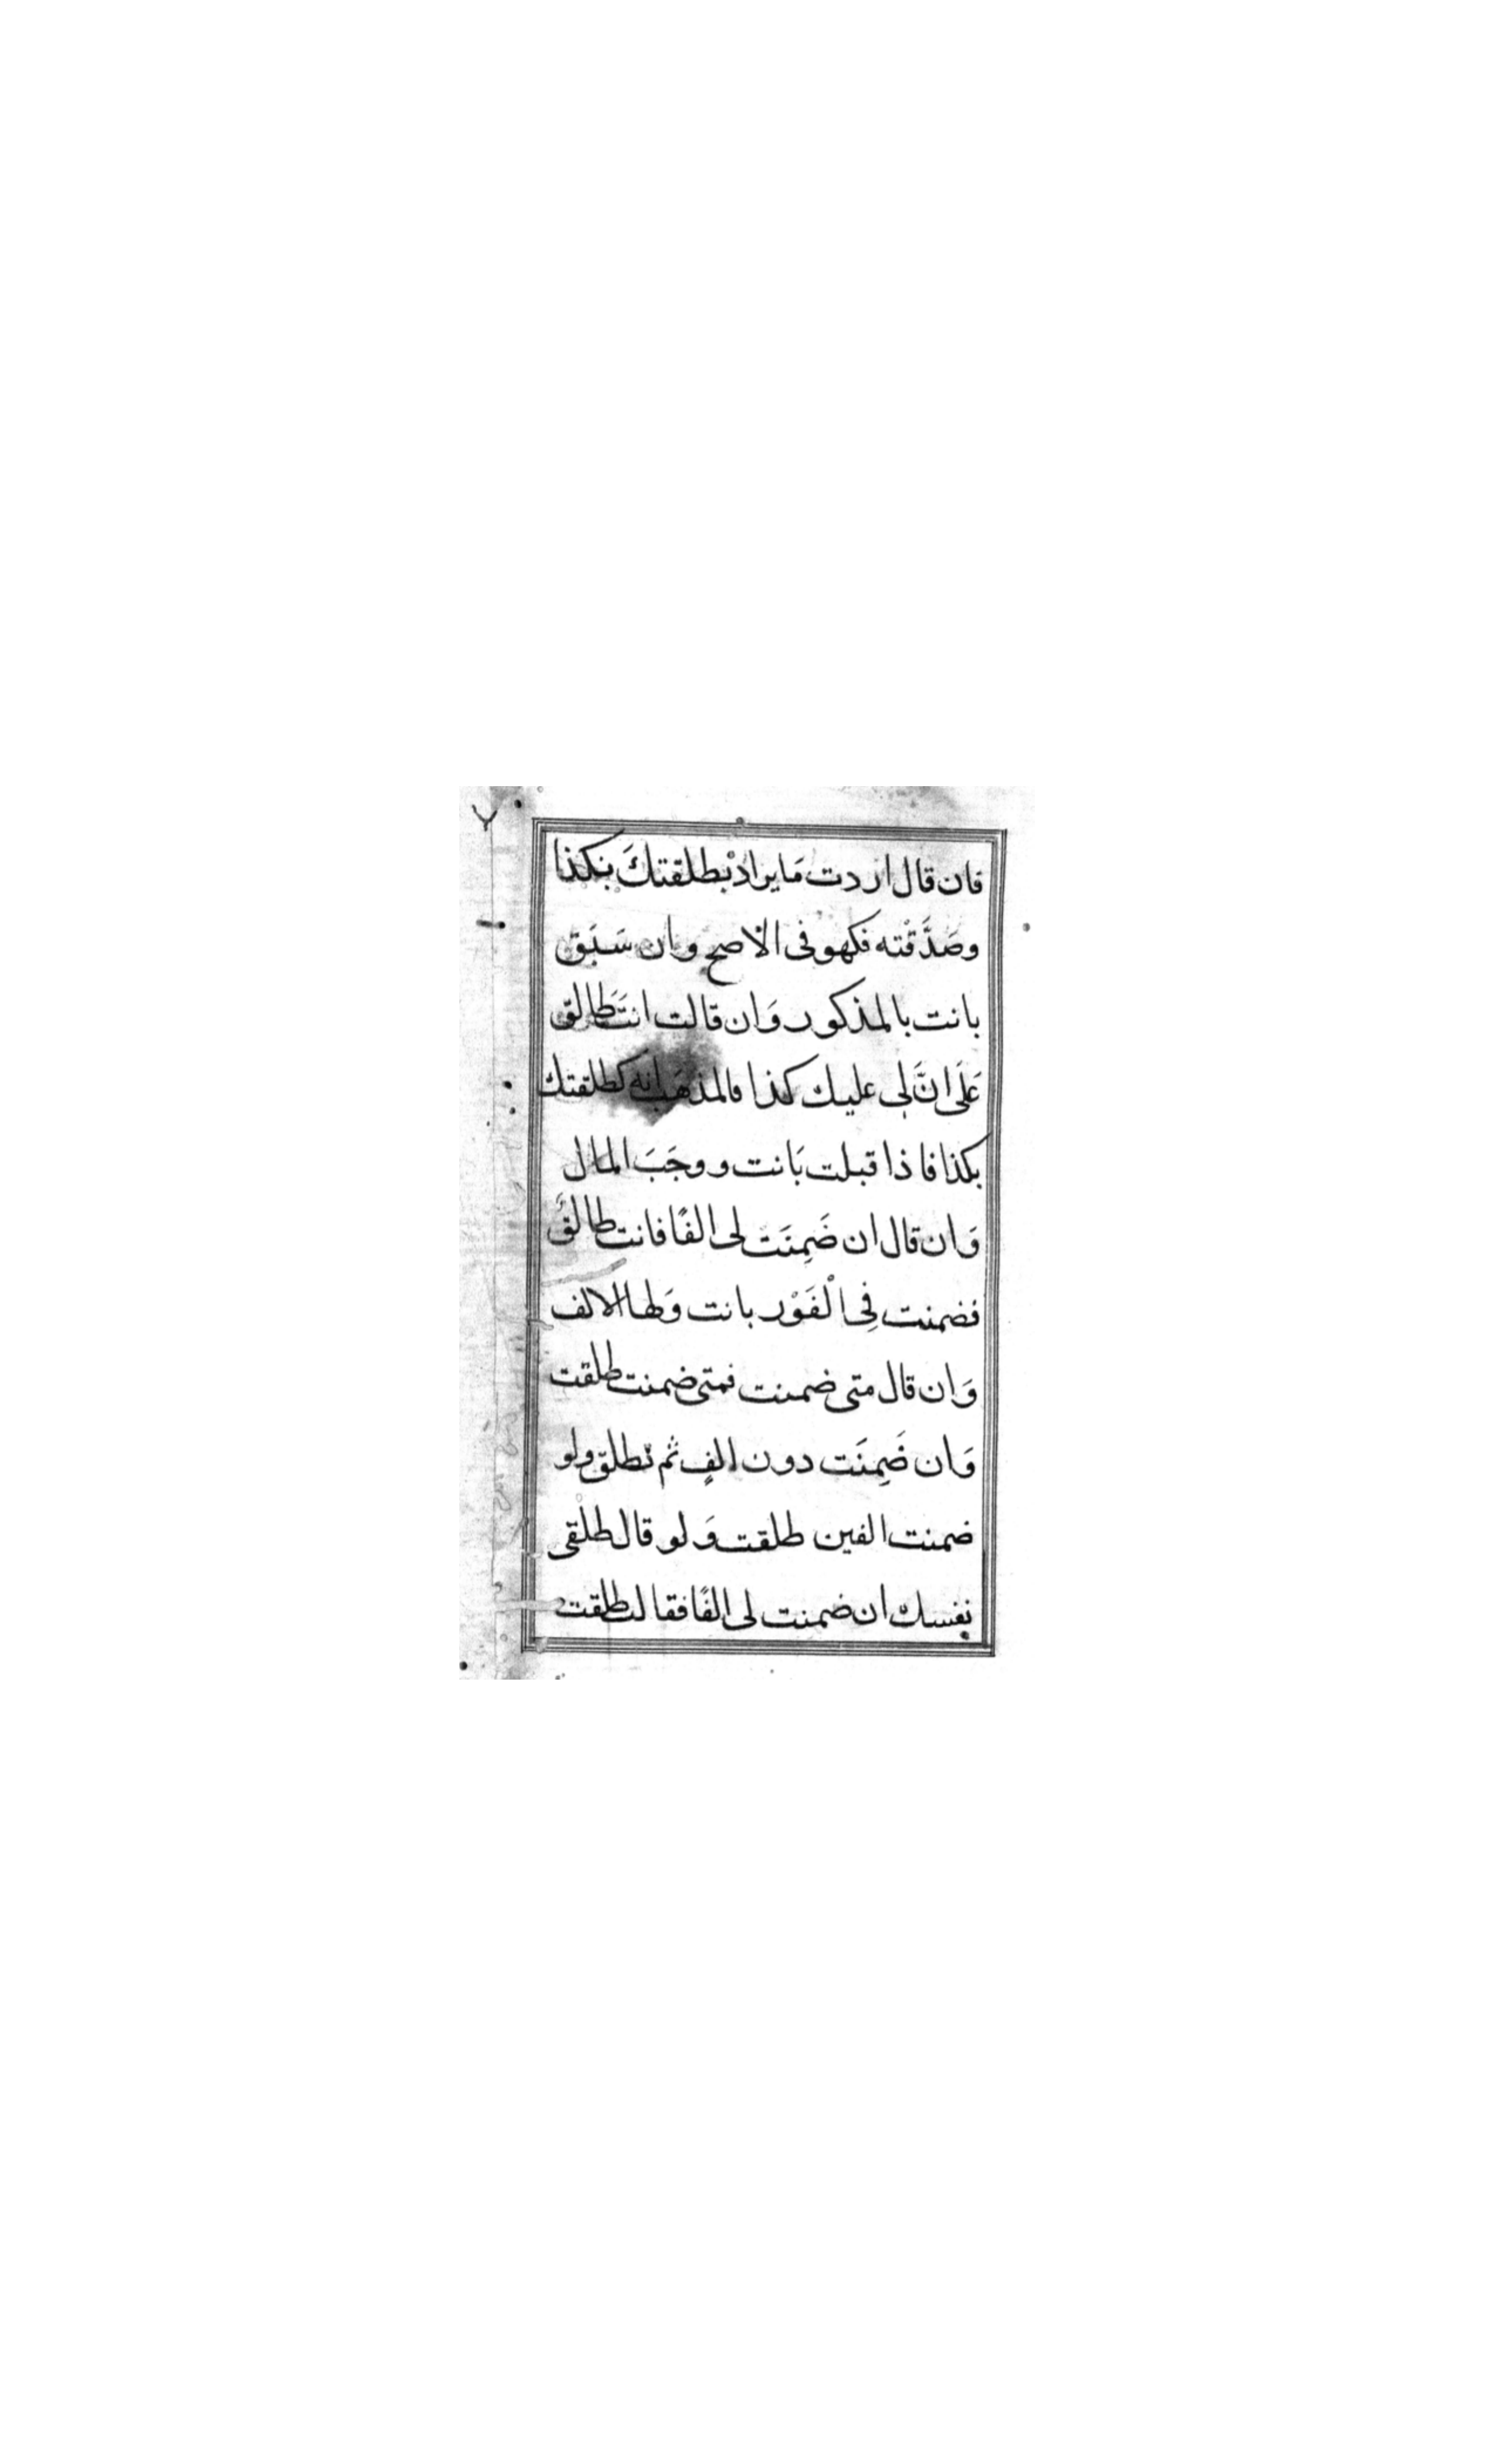 فان قال اردت مَا يراد بطلقتكَ بكذا
وصَدَّقْته فكهو فى الاصح وان سَبَق
بانت بالمذكور وَان قالت انتَ طَالق
عَلَى انَّ لى عليك كذا فالمذهَب انه كطلقتك
بكذا فاذا قبلت بَانت ووجَبَ المال
وَان قال ان ضَمِنَت لى الفًا فانت طالقٌ
فضمنت فِى الْفَوْر بانت وَلها الالف
وَان قال متى ضمنت فمتى ضمنت طلقت
وَان ضَمِنَت دون الفٍ ثم تطلق ولو
ضمنت الفين طلقت وَلو قال طلْقى
نفسك ان ضمنت لى الفًا فقالت طلقت